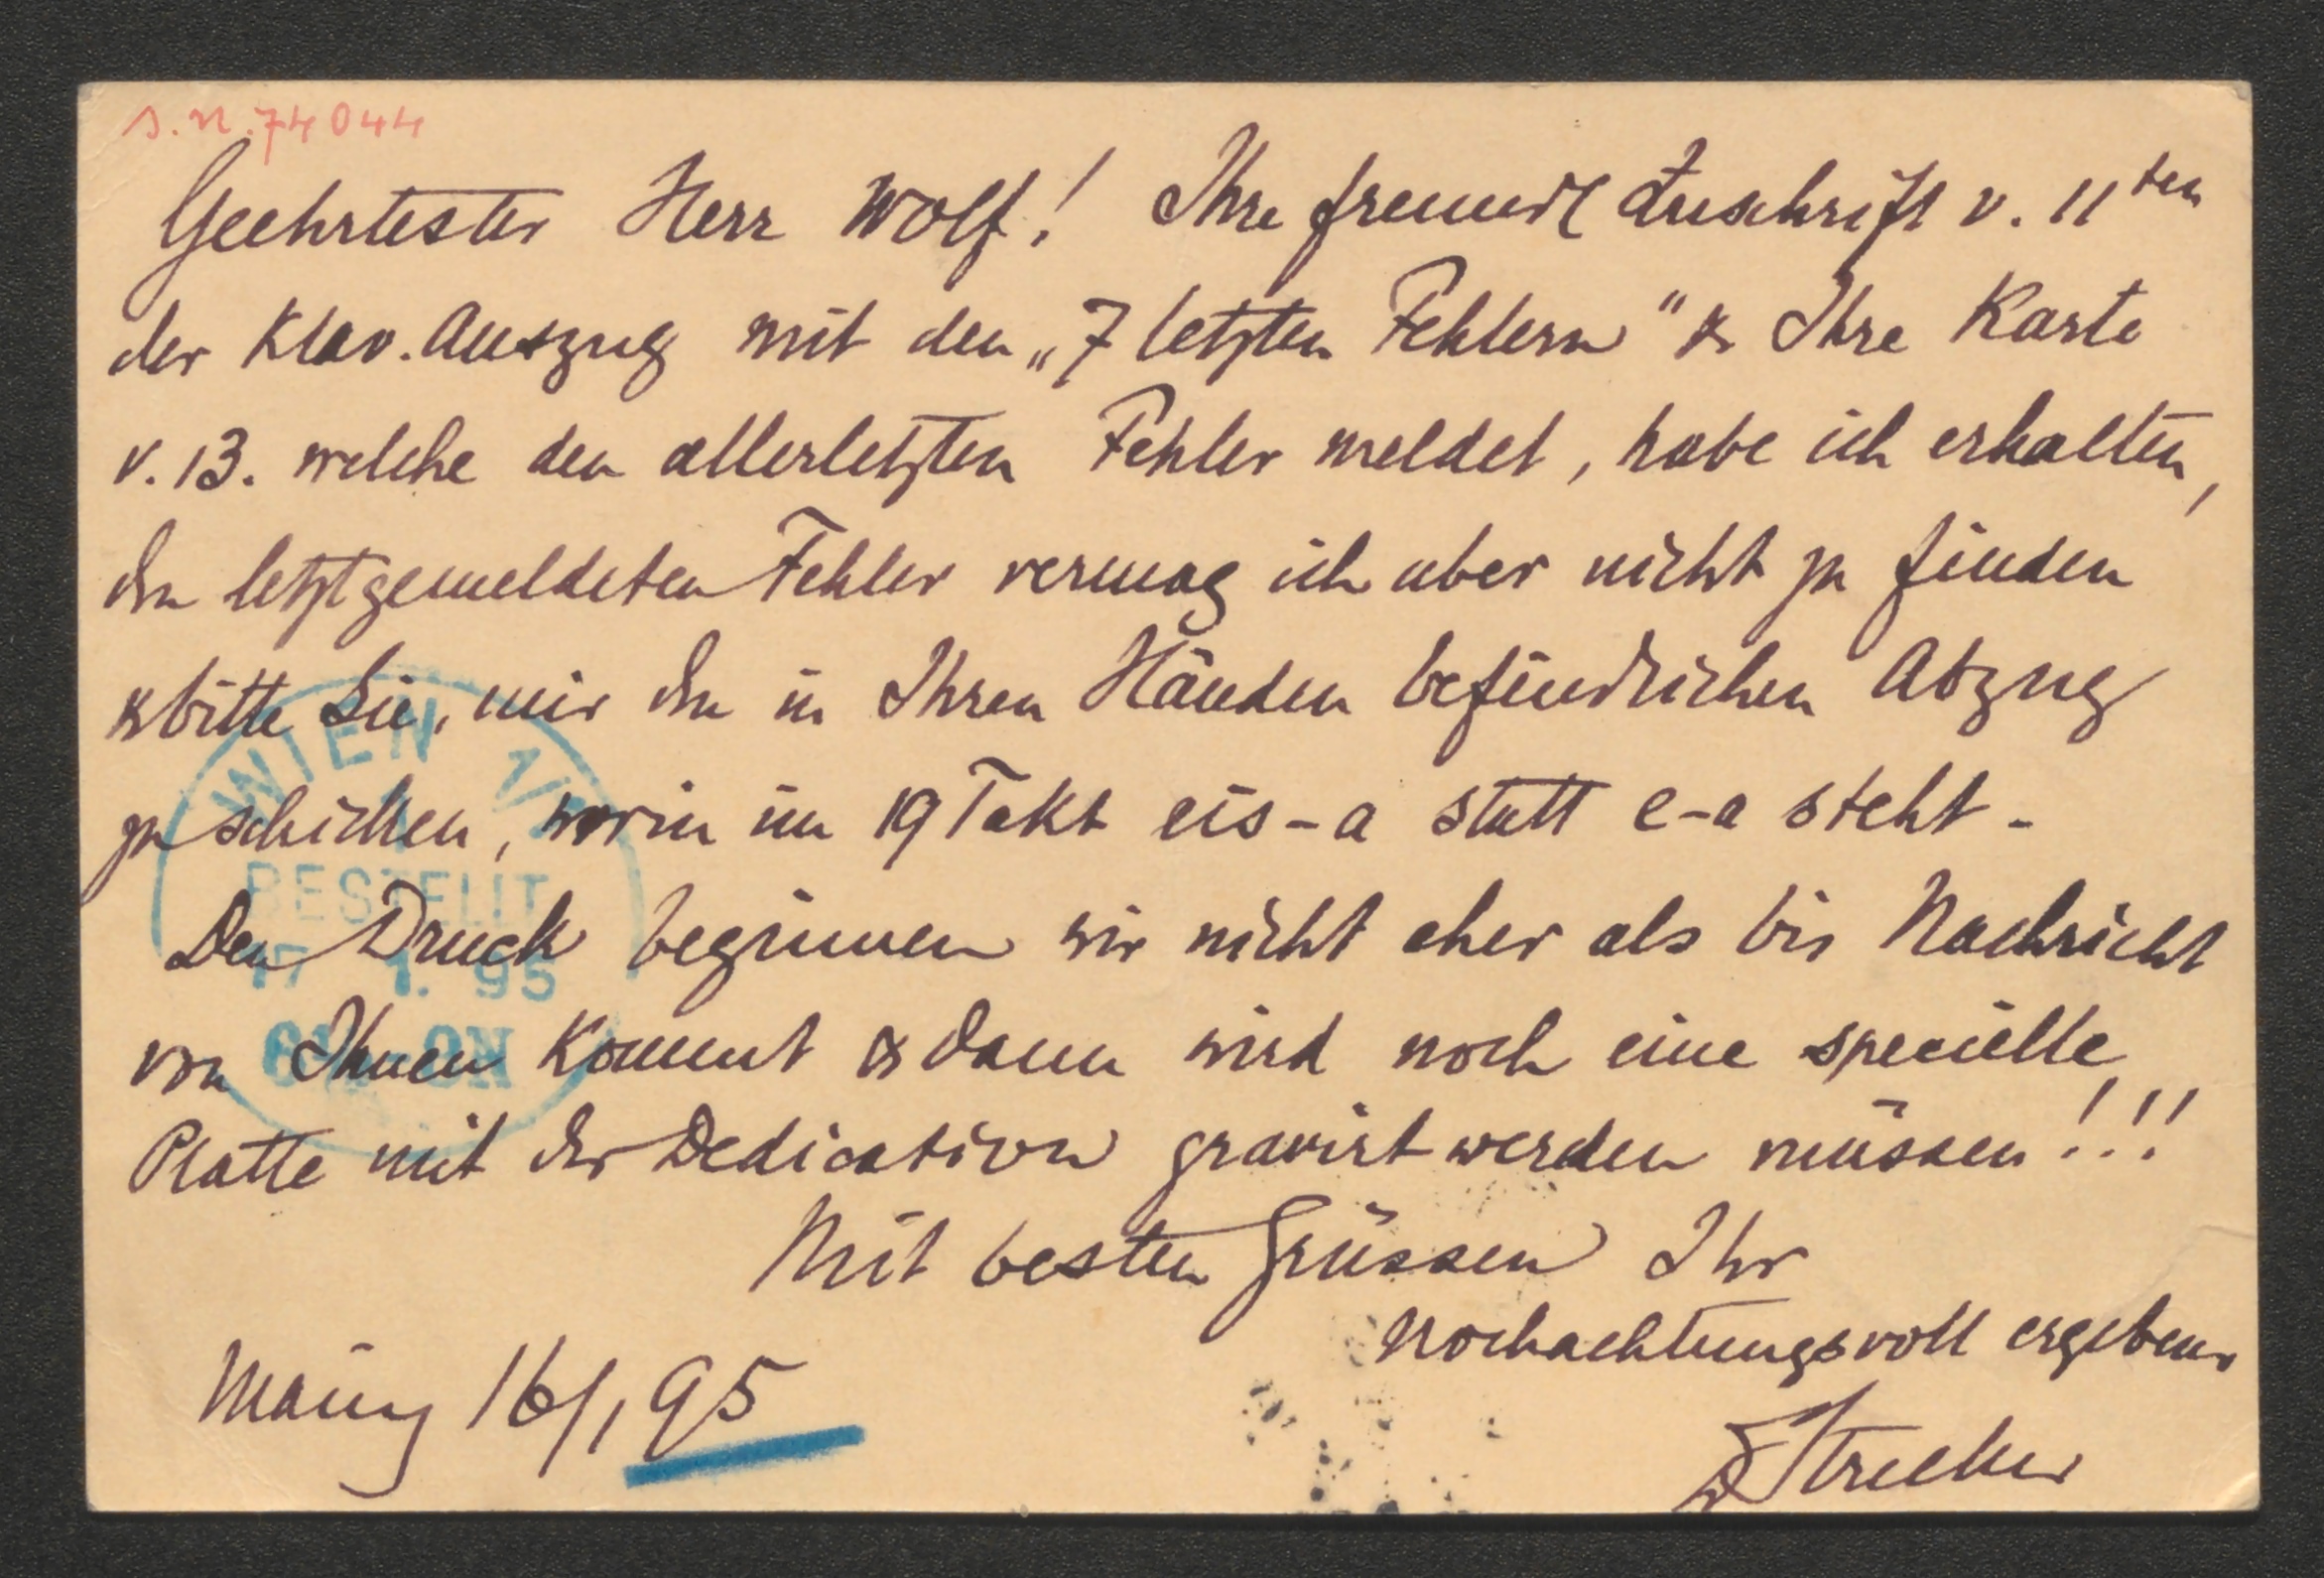 s. n. 74044
Geehrtester Herr Wolf! Ihre freundl Zuschrift v. 11ten
der Klav. Auszug mit den „7 letzten Fehlern" & Ihre Karte
v. 13. welche den allerletzten Fehler meldet, habe ich erhalten,
den letztgemeldeten Fehler vermag ich aber nicht zu finden
& bitte Sie, mir den in Ihren Händen befindlichen Abzug
zu schicken, worin im 19 Takt eis-a statt e-a steht -
Den Druck beginnen wir nicht eher als bis Nachricht
von Ihnen kommt & dann wird noch eine specielle
Platte mit der Dedication gravirt werden müssen!!!
Mit besten Grüssen Ihr
hochachtungsvoll ergebener
Mainz 16/1 95
Strecker
WIEN 1/1
BESTELLT
17 1. 95